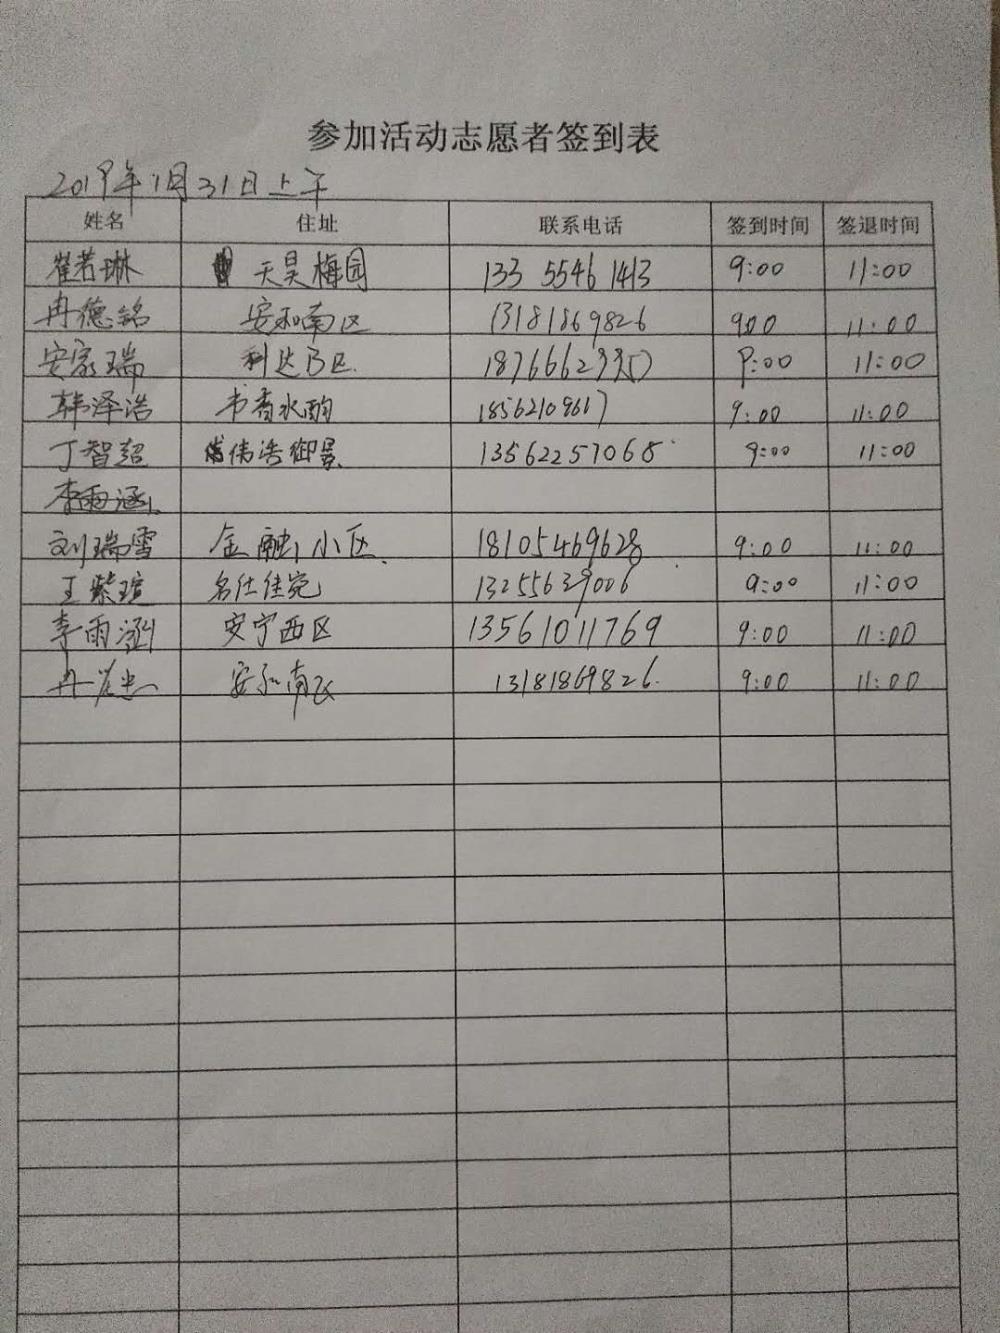 参加活动志愿者签到表
2019年1月31日上午
姓名 住址 联系电话 签到时间 签退时间
崔若琳 天昊梅园 133 5546 1413 9:00 11:00
冉德铭 安和南区 13181869826 900 11:00
安家瑞 利达B区. 9:00 11:00
韩泽浩 书香水韵 18562109617 9:00 11:00
丁智超 伟浩御景 13562257068 9:00 11:00
李雨涵
刘瑞雪 金融小区. 18105469628 9:00 11:00
王紫瑄 名仕佳苑 13255639006 9:00 11:00
李雨涵 安宁西区 13561011769 9:00 11:00
冉 安和南区 13181869826. 9:00 11:00